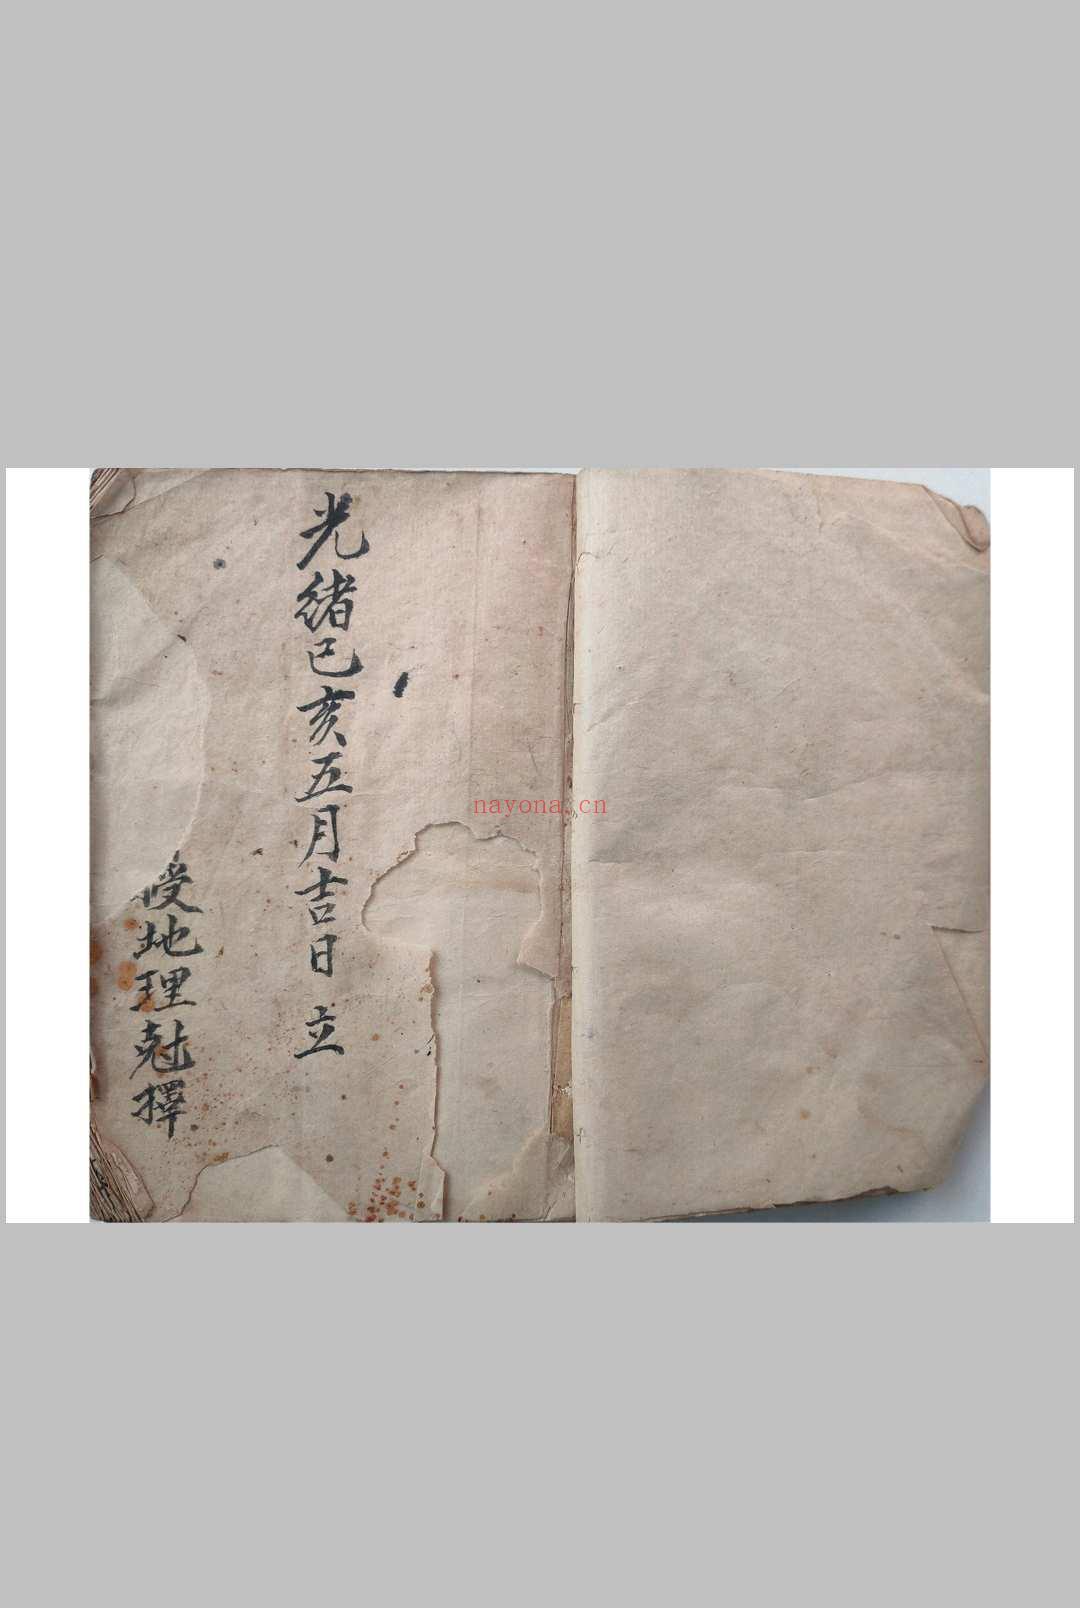 光緒己亥五月吉日 立
授地理尅擇
nayona.cn